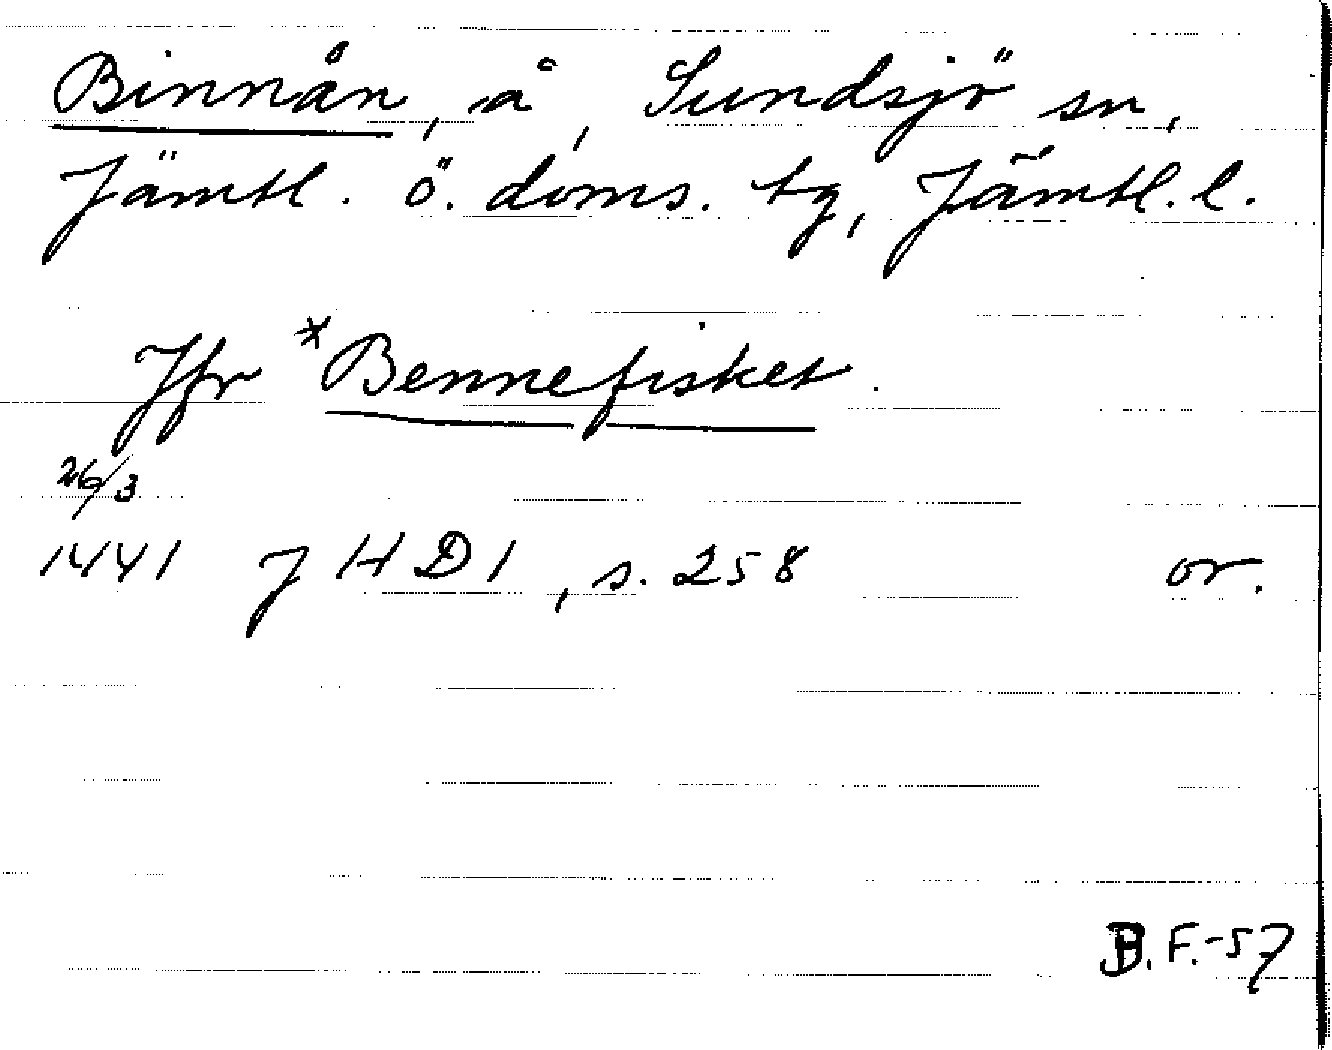 Binnån, å, Sundsjö sn,
Jämtl. ö. doms. tg, Jämtl. l.
Jfr *Bennefisket.
26/3
1441 J H D 1, s. 258 or.
B.F.-57